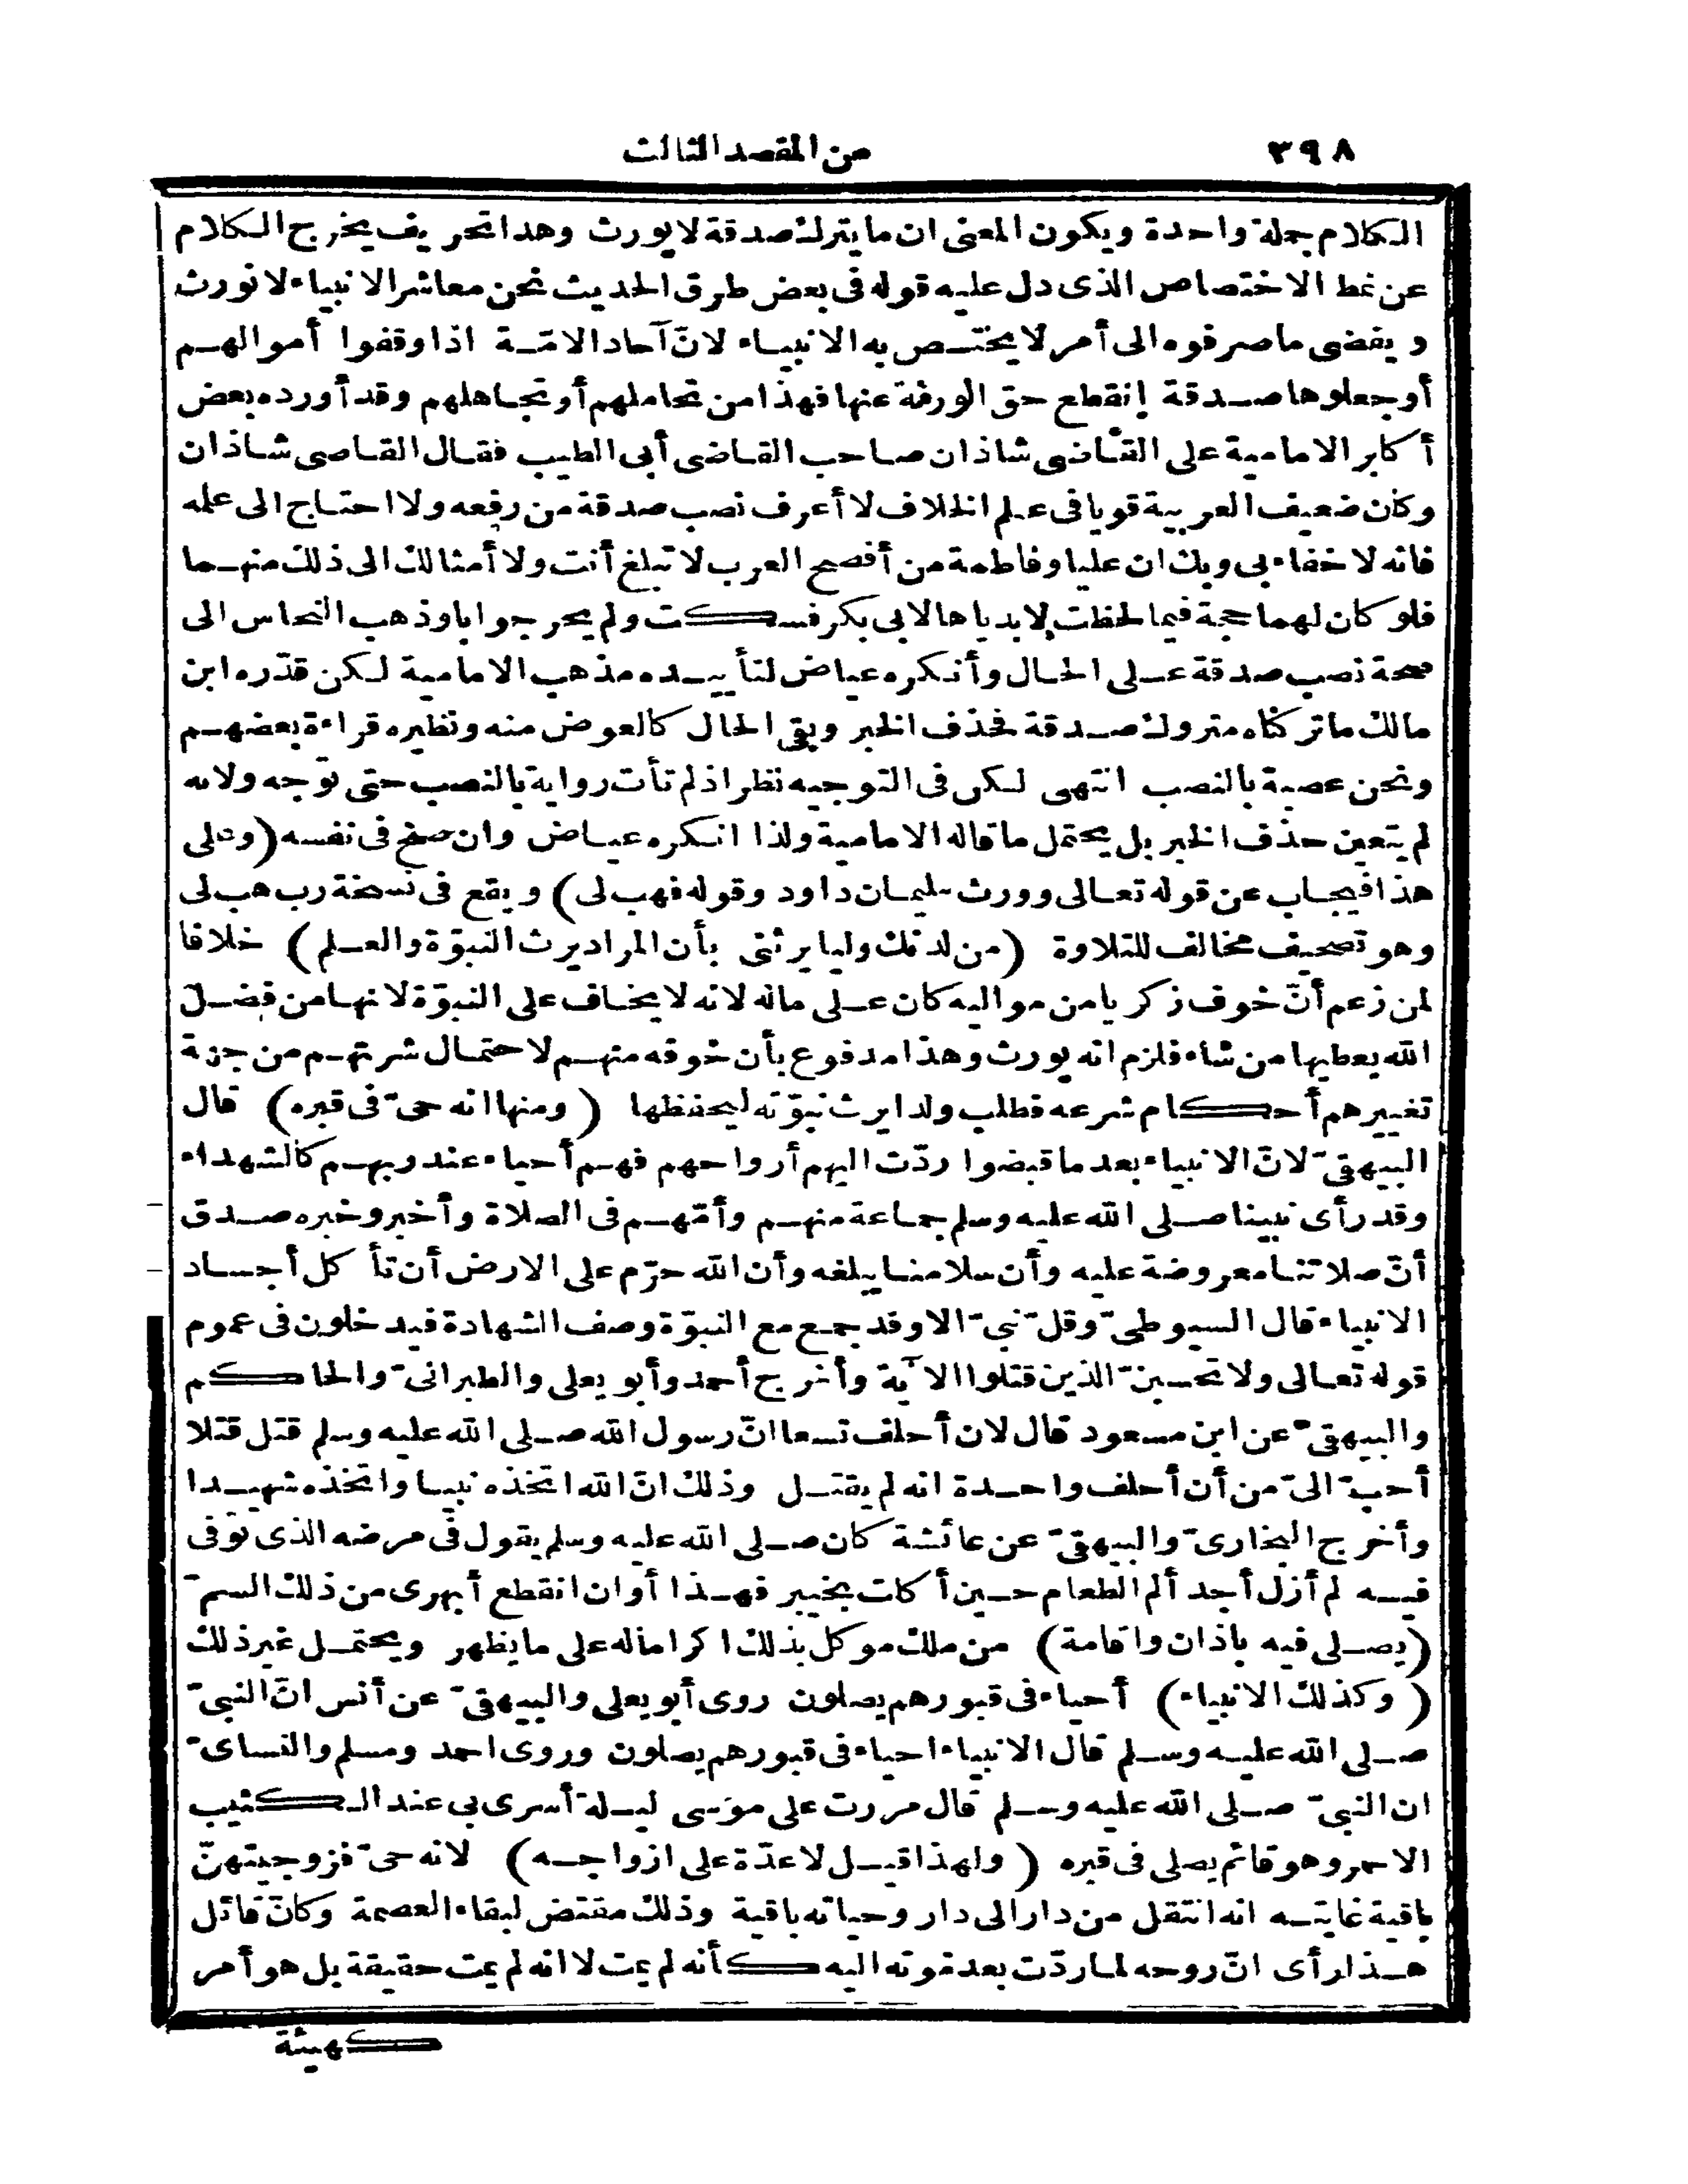 ٣٩٨ من المقصد الثالث
الكلام جملة واحدة ويكون المعنى ان ما يترك صدقة لا يورث وهذا تحريف يخرج الكلام
عن نمط الاختصاص الذى دل عليه قوله فى بعض طرق الحديث نحن معاشر الانبياء لا نورث
ويفضى ما صرفوه الى أمر لا يختص به الانبياء لانّ آحاد الامّة اذا وقفوا أموالهم
أو جعلوها صدقة انقطع حق الورثة عنها فهذا من تحاملهم أو تجاهلهم وقد أورده بعض
أكابر الامامية على القاضى شاذان صاحب القاضى أبى الطيب فقال القاضى شاذان
وكان ضعيف العربية قويا فى علم الخلاف لا أعرف نصب صدقة من رفعه ولا احتاج الى علمه
فانه لا خفاء بى وبك ان عليا وفاطمة من أفصح العرب لا تبلغ أنت ولا أمثالك الى ذلك منهما
فلو كان لهما حجة فيما لحظت لابدياها لابى بكر فسكت ولم يحر جوابا وذهب النحاس الى
صحة نصب صدقة على الحال وأنكره عياض لتأييده مذهب الامامية لكن قدّره ابن
مالك ما تركناه متروك صدقة فحذف الخبر وبقى الحال كالعوض منه ونظيره قراءة بعضهم
ونحن عصبة بالنصب انتهى لكن فى التوجيه نظر اذ لم تأت رواية بالنصب حتى توجه ولانه
لم يتعين حذف الخبر بل يحتمل ما قاله الامامية ولذا انكره عياض وان صح فى نفسه (وعلى
هذا فيجاب عن قوله تعالى وورث سليمان داود وقوله فهب لى) ويقع فى نسخة رب هب لى
وهو تصحيف مخالف للتلاوة (من لدنك وليا يرثنى بأن المراد يرث النبوّة والعلم) خلافا
لمن زعم أنّ خوف زكريا من مواليه كان على ماله لانه لا يخاف على النبوّة لانها من فضل
الله يعطيها من شاء فلزم انه يورث وهذا مدفوع بأن خوفه منهم لاحتمال شرتهم من جهة
تغييرهم أحكام شرعه فطلب ولدا يرث نبوّته ليحفظها (ومنها انه حىّ فى قبره) قال
البيهقىّ لانّ الانبياء بعد ما قبضوا ردّت اليهم أرواحهم فهم أحياء عند ربهم كالشهداء
وقد رأى نبينا صلى الله عليه وسلم جماعة منهم وأمّهم فى الصلاة وأخبر وخبره صدق
أنّ صلاتنا معروضة عليه وأن سلامنا يبلغه وأن الله حرّم على الارض أن تأكل أجساد
الانبياء قال السيوطىّ وقلّ نبىّ الا وقد جمع مع النبوّة وصف الشهادة فيدخلون فى عموم
قوله تعالى ولا تحسبنّ الذين قتلوا الآية وأخرج أحمد وأبو يعلى والطبرانىّ والحاكم
والبيهقىّ عن ابن مسعود قال لان أحلف تسعا انّ رسول الله صلى الله عليه وسلم قتل قتلا
أحبّ الىّ من أن أحلف واحدة انه لم يقتل وذلك انّ الله اتخذه نبيا واتخذه شهيدا
وأخرج البخارىّ والبيهقىّ عن عائشة كان صلى الله عليه وسلم يقول فى مرضه الذى توفى
فيه لم أزل أجد ألم الطعام حين أكلت بخيبر فهذا أوان انقطع أبهرى من ذلك السمّ
(يصلى فيه باذان واقامة) من ملك موكل بذلك اكراما له على ما يظهر ويحتمل غير ذلك
(وكذلك الانبياء) أحياء فى قبورهم يصلون روى أبو يعلى والبيهقىّ عن أنس انّ النبىّ
صلى الله عليه وسلم قال الانبياء احياء فى قبورهم يصلون وروى احمد ومسلم والنساىّ
ان النبىّ صلى الله عليه وسلم قال مررت على موسى ليلة أسرى بى عند الكثيب
الاحمر وهو قائم يصلى فى قبره (ولهذا قيل لا عدّة على ازواجه) لانه حىّ فزوجيتهنّ
باقية غايته انه انتقل من دار الى دار وحياته باقية وذلك مقتض لبقاء العصمة وكانّ قائل
هذا رأى انّ روحه لما ردّت بعد موته اليه كأنه لم يمت لا انه لم يمت حقيقة بل هو أمر
كهيئة